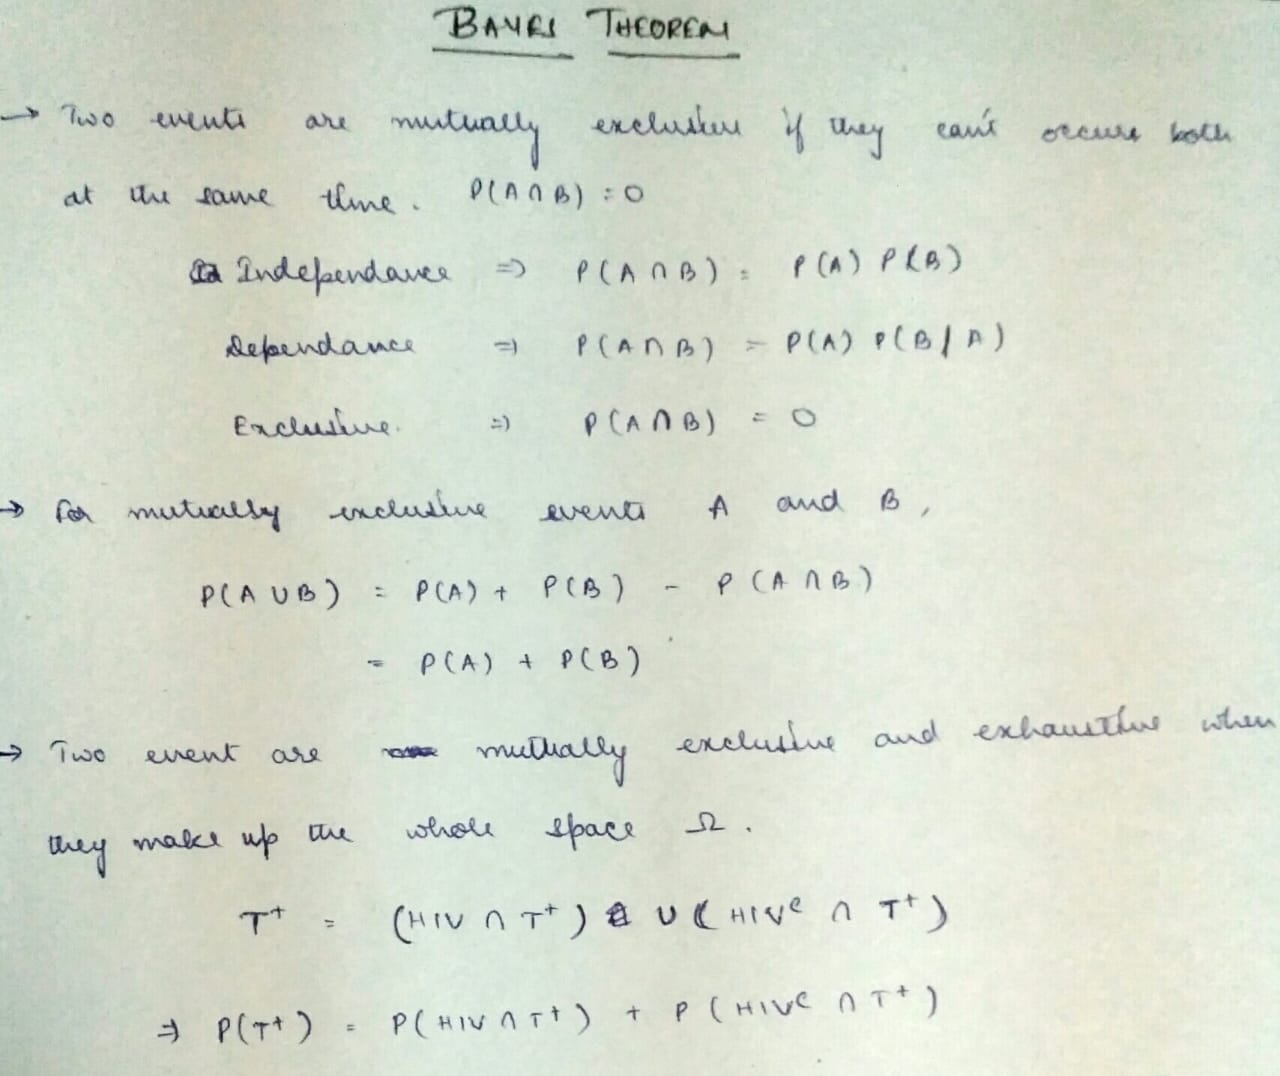 BAYES THEOREM
→ Two events are mutually exclusive if they can't occurs both
at the same time. P(A∩B) = 0
Independance ⇒ P(A∩B) = P(A) P(B)
Dependance ⇒ P(A∩B) = P(A) P(B/A)
Exclusive. ⇒ P(A∩B) = 0
→ For mutually exclusive events A and B,
P(A∪B) = P(A) + P(B) - P(A∩B)
= P(A) + P(B)
→ Two event are mutually exclusive and exhaustive when
they make up the whole space Ω.
T⁺ = (HIV ∩ T⁺) ∪ (HIVᶜ ∩ T⁺)
⇒ P(T⁺) = P(HIV ∩ T⁺) + P(HIVᶜ ∩ T⁺)